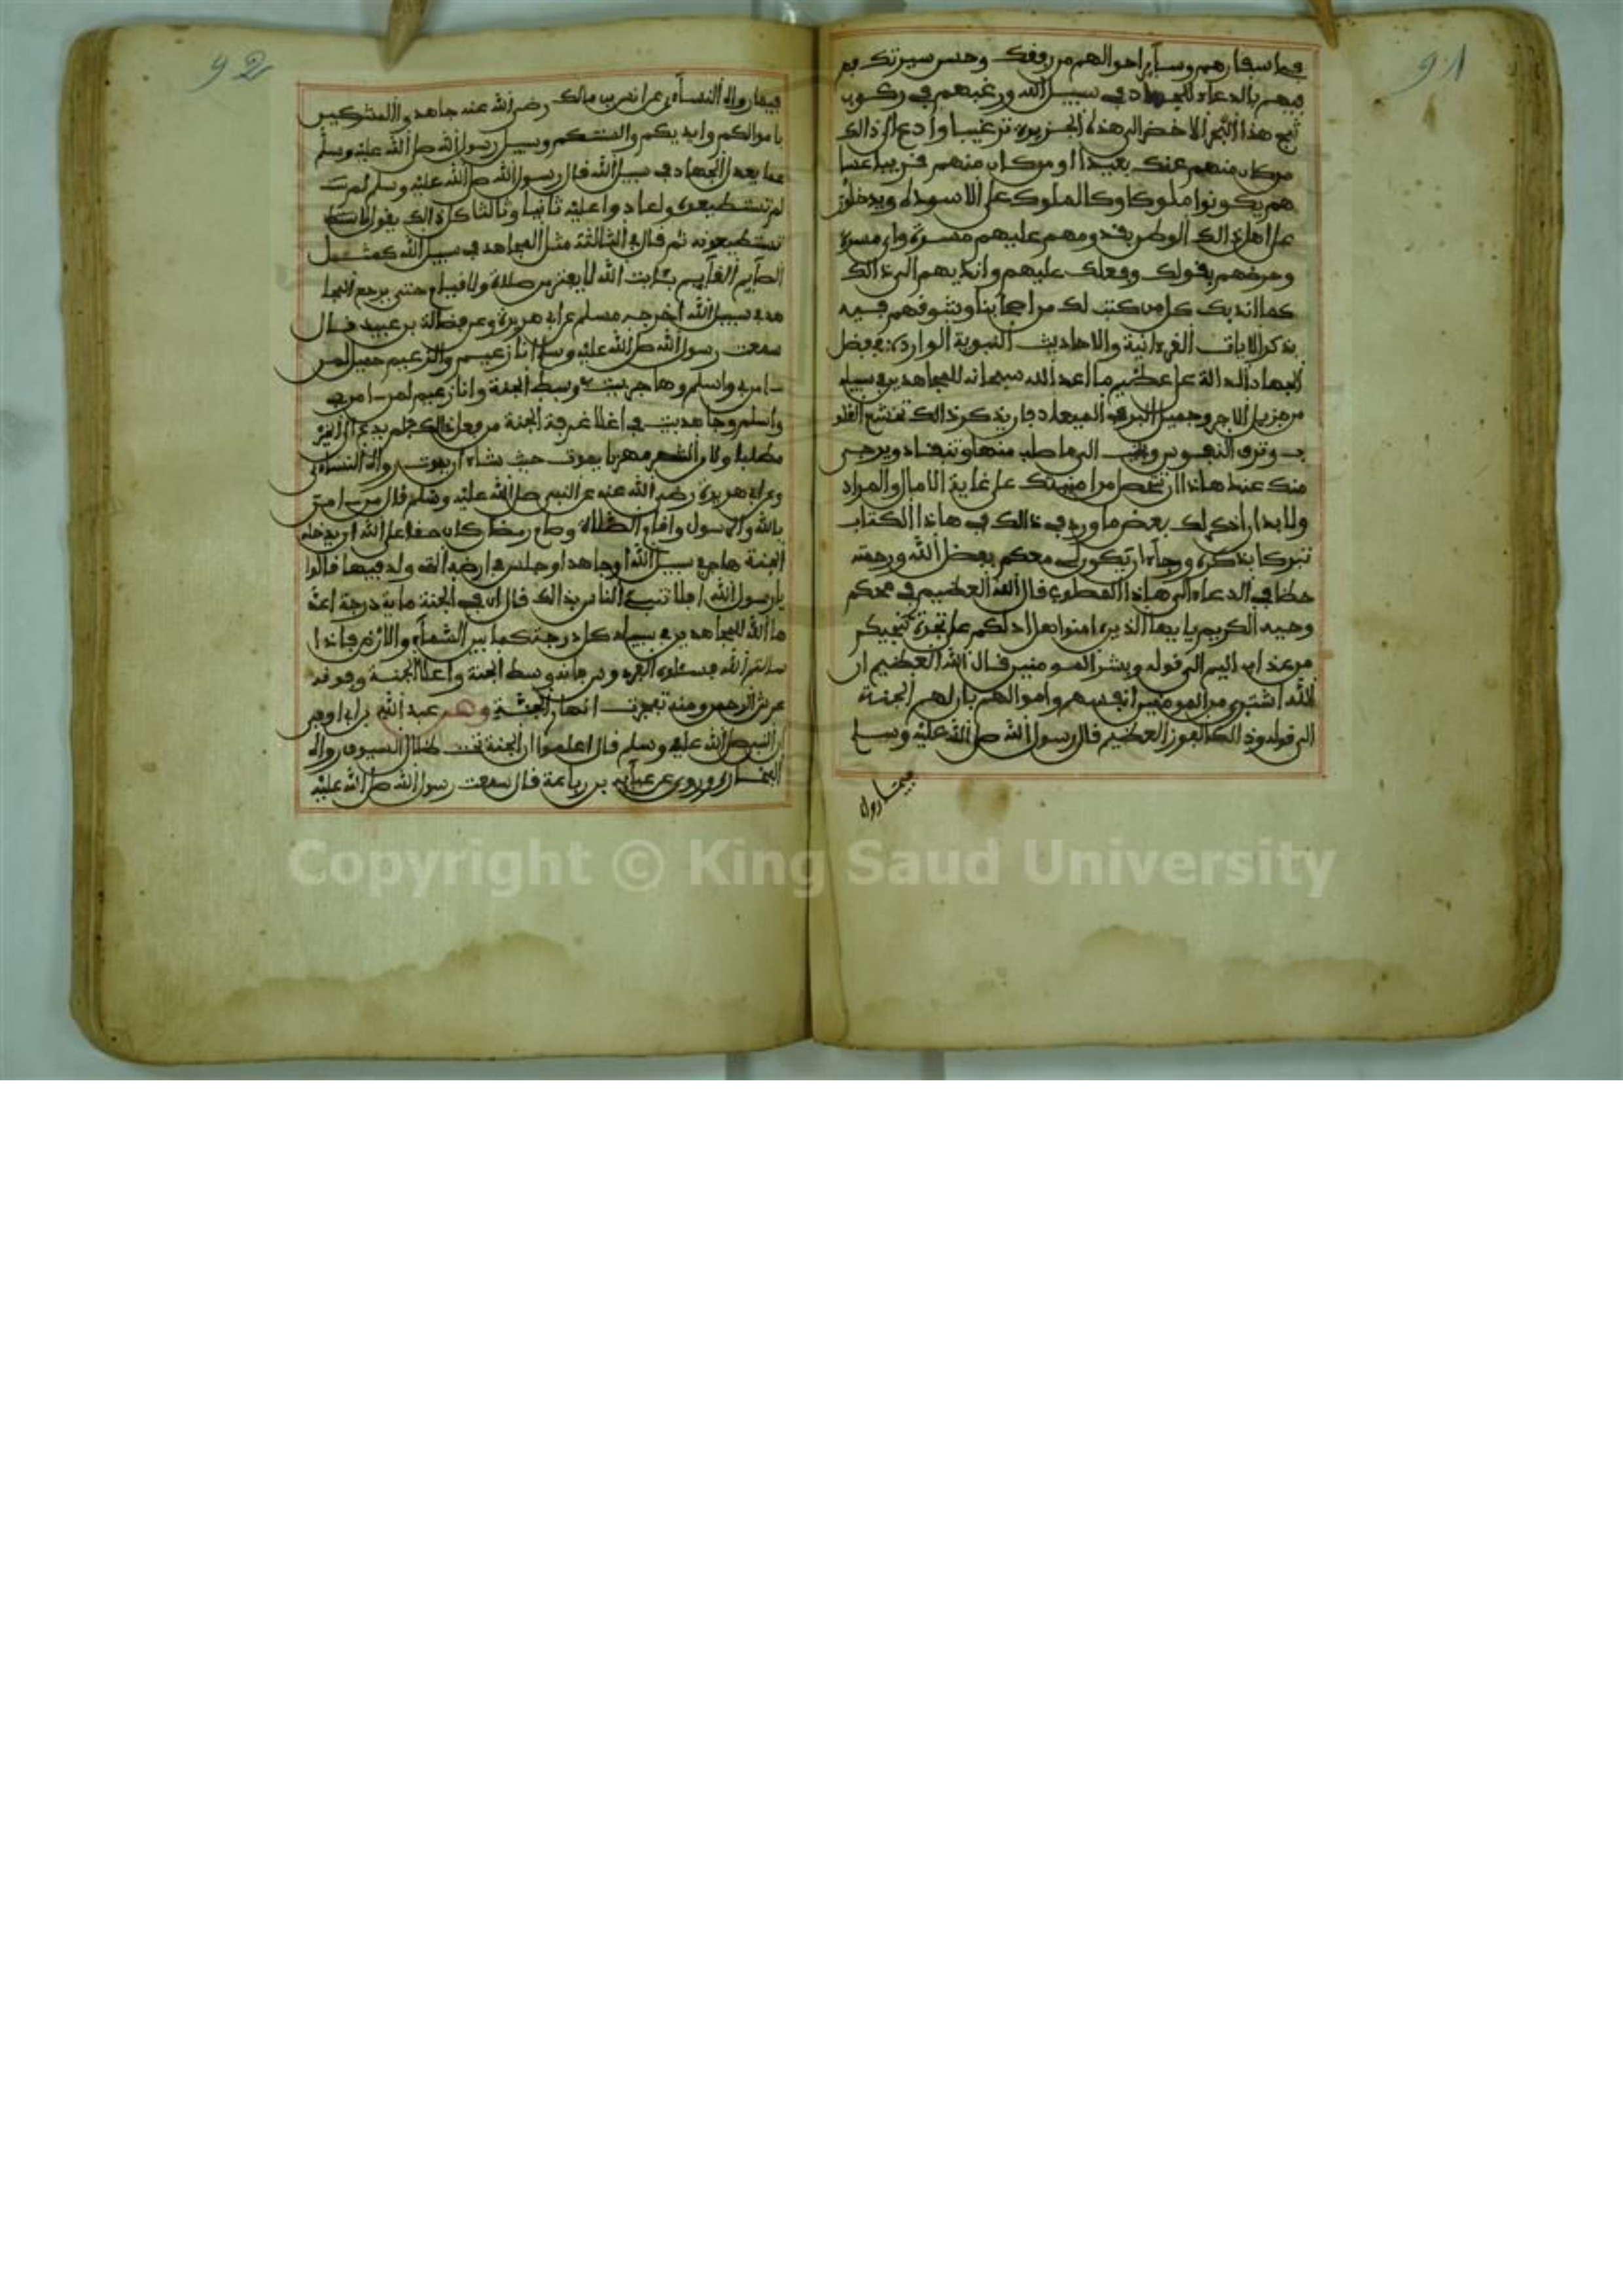 91
فى اسفارهم وساير احوالهم من رفقك وحسن سيرتك بهم
فيهم بالدعاء للجهاد في سبيل الله ورغبهم في ركوب
ثبج هذا البحر الاخضر الى هذه الجزيرة ترغيبا وادع الى ذالك
من كان منهم عنك بعيدا او من كان منهم قريبا عسا
هم يكونوا ملوكا وكالملوك على الاسرة ويدخلون
على اهل ذالك الوطن بقدومهم عليهم مسرة واي مسرة
وحرضهم بقولك وفعلك عليهم واندبهم الى ذالك
كما اندبك كل من كتب لك من اصحابنا وشوقهم فيه
بذكر الايات القرءانية والاحاديث النبوية الواردة بفضل
الجهاد الدالة على عظيم ما اعد الله سبحانه للمجاهدين في سبيله
من جزيل الاجر وجميل البر في الميعاد فان بذكر ذالك تخشع القلو
ب وترق النفوس الى ما طلب منها وتنقاد ويرجى
منك عند هاذا ان تحصل من امنيتك على غاية الامال والمراد
ولا بد ان اذكر لك بعض ما ورد في ذالك في هاذا الكتاب
تبركا بذكره ورجاء ان يكون لي معكم بفضل الله ورحمته
حظا في الدعاء الى هاذا المطلوب قال الله العظيم في محكم
وحيه الكريم يايها الذين ءامنوا هل ادلكم على تجرة تنجيكم
من عذاب اليم الى قوله وبشر المومنين وقال الله العظيم ان
الله اشترى من المومنين انفسهم واموالهم بان لهم الجنة
الى قوله وذالك الفوز العظيم قال رسول الله صلى الله عليه وسلم
فيما رواه
92
فيما رواه النساءي عن انس بن مالك رضى الله عنه جاهدوا المشركين
باموالكم وايديكم والسنتكم وسيل رسول الله صلى الله عليه وسلم
عما يعدل الجهاد في سبيل الله قال رسول الله صلى الله عليه وسلم
لم تستطيعوه ولعادوا عليه ثانيا وثالثا كل ذالك يقول لا
تستطيعونه ثم قال في الثالثة مثل المجاهد في سبيل الله كمثل
الصايم القايم بئايت الله لا يفتر من صلاة ولا صيام حتى يرجع المجا
هد في سبيل الله اخرجه مسلم عن ابي هريرة وعن فضالة بن عبيد قال
سمعت رسول الله صلى الله عليه وسلم انا زعيم والزعيم حميل لمن
ءامن بي واسلم وهاجر ببيت في وسط الجنة وانا زعيم لمن ءامن بي
واسلم وجاهد ببيت في اعلا غرفة الجنة من فعل ذالك فلم يدع للخير
مطلبا ولا من الشر مهربا يموت حيث شاء ان يموت رواه النساءي
وعن ابي هريرة رضى الله عنه عن النبي صلى الله عليه وسلم قال من ءامن
بالله والرسول واقام الصلاة وصام رمضان كان حقا على الله ان يدخله
الجنة هاجر في سبيل الله او جاهد او جلس في ارضه التى ولد فيها قالوا
يا رسول الله افلا ننبئ الناس بذالك قال ان في الجنة ماية درجة اعد
ها الله للمجاهدين في سبيله كل درجة كما بين السماء والارض فاذا
سالتم الله فسئلوه الفردوس فانه وسط الجنة واعلا الجنة وفوقه
عرش الرحمن ومنه تفجرت انهار الجنة وعن عبد الله بن ابي اوفى
ان النبي صلى الله عليه وسلم قال اعلموا ان الجنة تحت ظلال السيوف رواه
البخاري وروى عن عباية بن رفاعة قال سمعت رسول الله صلى الله عليه
Copyright © King Saud University